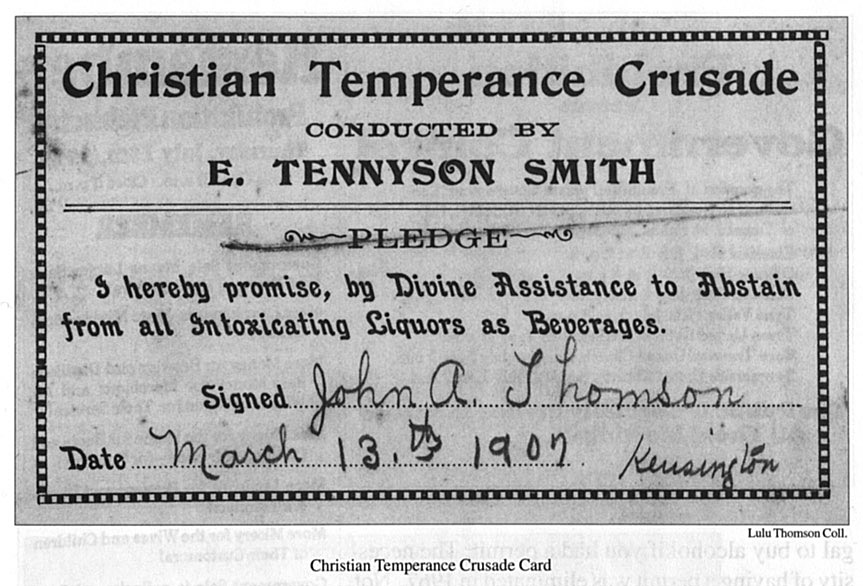 Christian Temperance Crusade
CONDUCTED BY
E. TENNYSON SMITH
PLEDGE
I hereby promise, by Divine Assistance to Abstain
from all Intoxicating Liquors as Beverages.
Signed John A. Thomson
Date March 13.th 1907 Kensington
Lulu Thomson Coll.
Christian Temperance Crusade Card